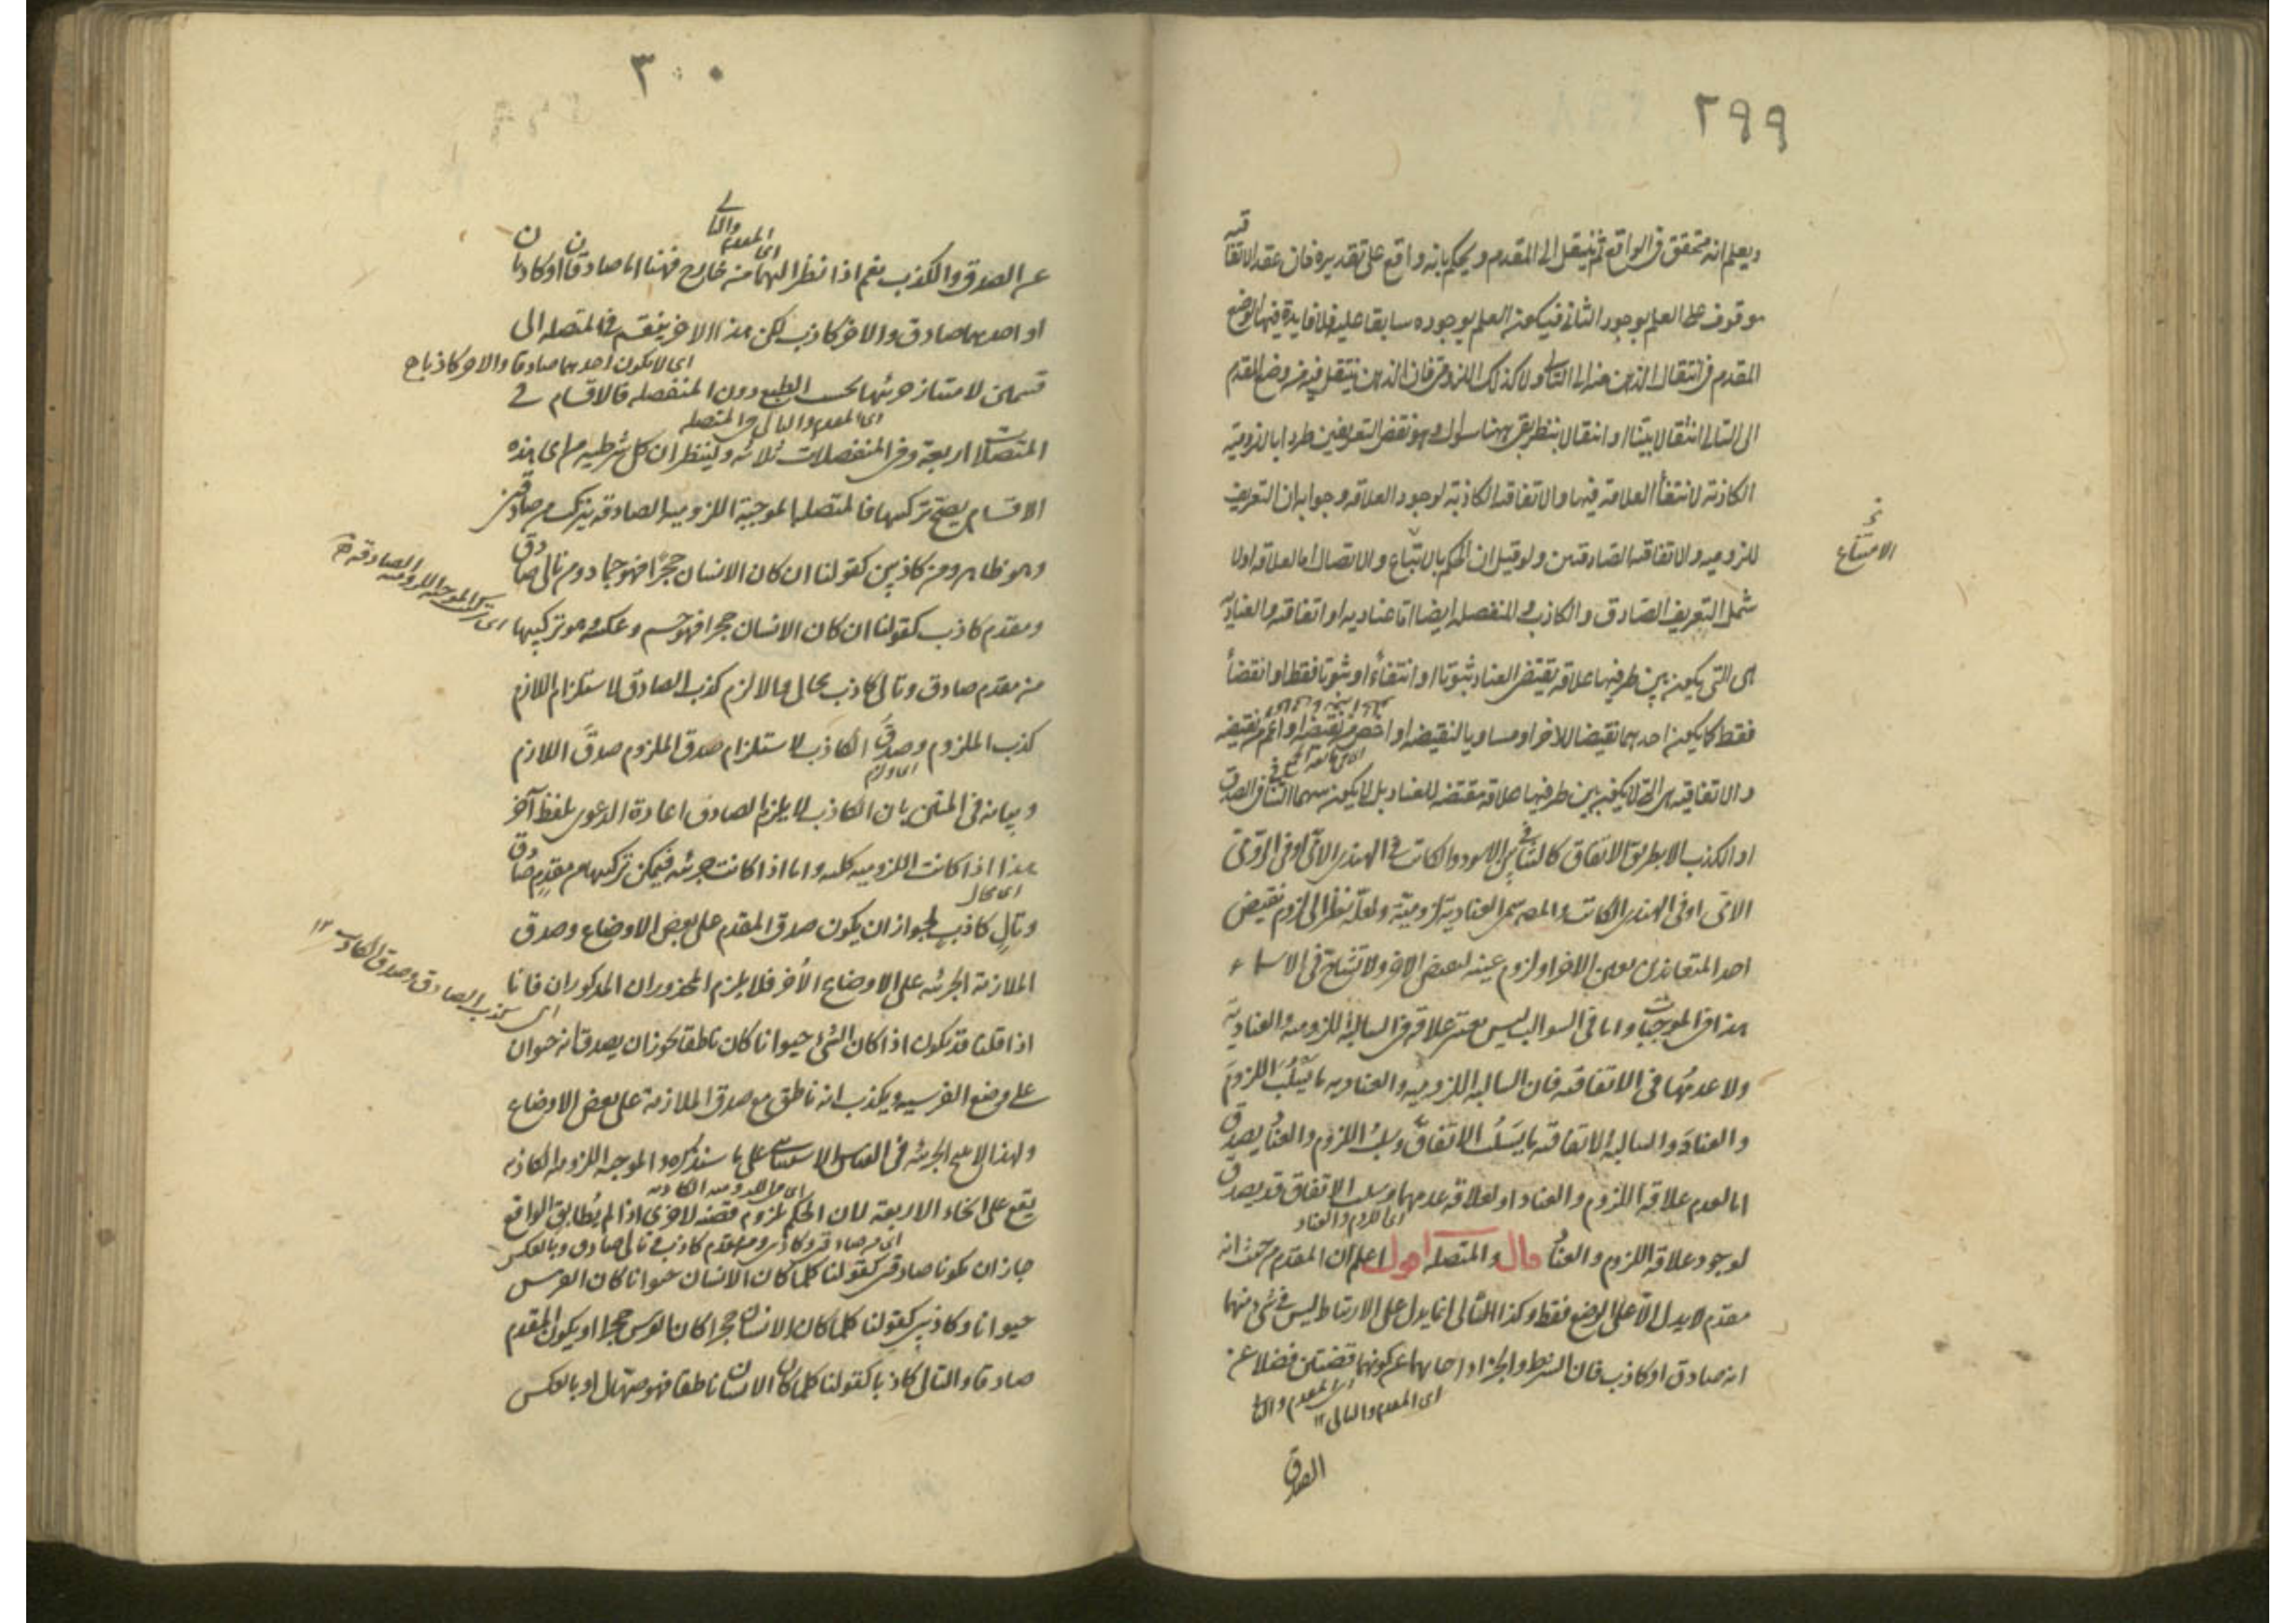 ٢٩٩
ويعلم انه متحقق فى الواقع ثم ينتقل الى المقدم ويحكم بانه واقع على تقديره فان عقد الاتفاقية
موقوف على العلم بوجود الثانى فيكون العلم بوجوده سابقا عليه فلا فايدة فيها لوضع
المقدم فى انتقال الذهن منه الى التالى ولا كذلك اللزومى فان الذهن ينتقل فيه من وضع المقدم
الى التالى انتقالا بينا او انتقالا بنظر بقى ههنا سوال وهو نقض التعريفين طردا باللزومية
الكاذبة لانتفاء العلاقة فيها والاتفاقية الكاذبة لوجود العلاقة وجوابه ان التعريف
للزومية والاتفاقية الصادقتين ولو قيل ان الحكم بالاتباع والاتصال اما لعلاقة اولا
الامتناع
شمل التعريف الصادق والكاذب والمنفصلة ايضا اما عنادية او اتفاقية والعنادية
هى التى يكون بين طرفيها علاقة يقتضى العناد ثبوتا او انتفاء او ثبوتا فقط او انتفاء
فقط كما يكون احدهما نقيضا للاخر او مساويا لنقيضه او اخص من نقيضه او اعم من نقيضه
والاتفاقية هى التى لا يكون بين طرفيها علاقة مقتضية للعناد بل لا يكون بينهما التنافى فى الصدق
او الكذب الا بطريق الاتفاق كالتنافى بين الاسود والكاتب فى الهندى الامى او فى الرومى
الامى او فى الهندى الكاتب والمص سمى العنادية لزومية ولعله نظر الى لزوم نقيض
احد المتعاندين لعين الاخر او لزوم عينه لنقيض الاخر ولا تشاح فى الاسماء
هذا فى الموجبات واما فى السوالب ليس يعتبر علاقة فى السالبة اللزومية والعنادية
ولا عدمها فى الاتفاقية فان السالبة اللزومية والعنادية ما يسلب اللزوم
والعناد والسالبة الاتفاقية ما يسلب الاتفاق وسلب اللزوم والعناد يصدق
اما لعدم علاقة اللزوم والعناد او لعلاقة عدمهما وسلب الاتفاق قد يصدق
اى اللزوم والعناد
لوجود علاقة اللزوم والعناد قال والمتصلة اقول اعلم ان المقدم من حيث انه
مقدم لا يدل الا على الوضع فقط وكذا التالى انما يدل على الارتباط ليس فى شئ منهما
انه صادق او كاذب فان الشرط والجزاء احالهما عن كونهما قضيتين فضلا عن
اى المقدم والتالى ١٢
الصدق
٣٠٠
اى المقدم والتالى
عن الصدق والكذب نعم اذا نظر اليهما من خارج فهنا اما صادقان او كاذبان
او احدهما صادق والاخر كاذب لكن هذا الاخر ينقسم فى المتصلة الى
اى لا يكون احدهما صادقا والاخر كاذبا
قسمين لامتياز جزئيها بحسب الطبع دون المنفصلة فالاقسام فى
اى المقدم والتالى فى المتصلة
المتصلات اربعة وفى المنفصلات ثلاثة ولينظر ان كل شرطية من اى هذه
الاقسام يصح تركيبها فالمتصلة الموجبة اللزومية الصادقة يتركب من صادقين
وهو ظاهر ومن كاذبين كقولنا ان كان الانسان حجرا فهو جماد ومن تالى صادق
ومقدم كاذب كقولنا ان كان الانسان حجرا فهو جسم وعكسه هو تركيبها
اى تركيب الموجبة اللزومية الصادقة
من مقدم صادق وتالى كاذب محال والا لزم كذب الصادق لاستلزام اللازم
كذب الملزوم وصدق الكاذب لاستلزام صدق الملزوم صدق اللازم
وبيانه فى المتن بان الكاذب لا يلزم الصادق اعادة الدعوى بلفظ آخر
هذا اذا كانت اللزومية كلية واما اذا كانت جزئية فيمكن تركيبها من مقدم صادق
اى محال
وتال كاذب لجواز ان يكون صدق المقدم على بعض الاوضاع وصدق
الملازمة الجزئية على الاوضاع الأخر فلا يلزم المحذوران المذكوران فانا
اى كذب الصادق وصدق الكاذب ١٢
اذا قلنا قد يكون اذا كان الشئ حيوانا كان ناطقا يجوز ان يصدق انه حيوان
على وضع الفرسية ويكذب انه ناطق مع صدق الملازمة على بعض الاوضاع
ولهذا لا ينتج الجزئية فى القياس الاستثنائى على ما سنذكره والموجبة اللزومية الكاذبة
يقع على انحاء الاربعة لان الحكم بلزوم قضية لاخرى اذا لم يطابق الواقع
اى من صادقين وكاذبين ومن مقدم كاذب وتالى صادق وبالعكس
جاز ان يكونا صادقين كقولنا كلما كان الانسان حيوانا كان الفرس
حيوانا وكاذبين كقولنا كلما كان الانسان حجرا كان الفرس حجرا او يكون المقدم
صادقا والتالى كاذبا كقولنا كلما كان الانسان ناطقا فهو صهال او بالعكس